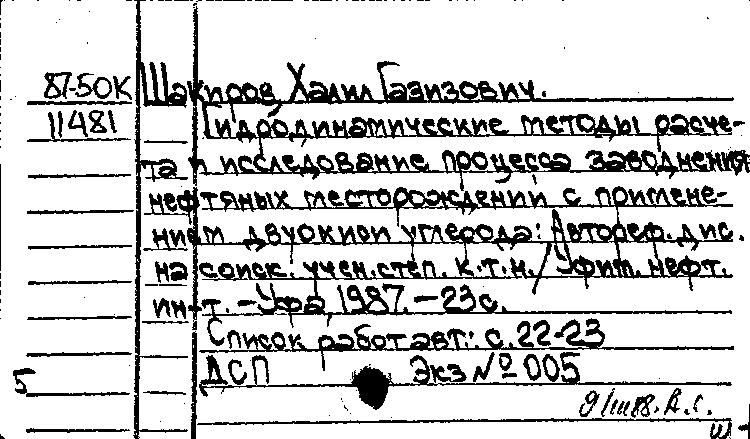 87-50К Шакиров, Халил Газизович.
11481 Гидродинамические методы расче-
та и исследование процесса заводнения
нефтяных месторождений с примене-
нием двуокиси углерода: Автореф. дис.
на соиск. учен. степ. к.т.н. / Уфим. нефт.
ин-т. - Уфа, 1987. - 23 с.
Список работ авт.: с. 22-23
ДСП Экз № 005
5
9/III 88.